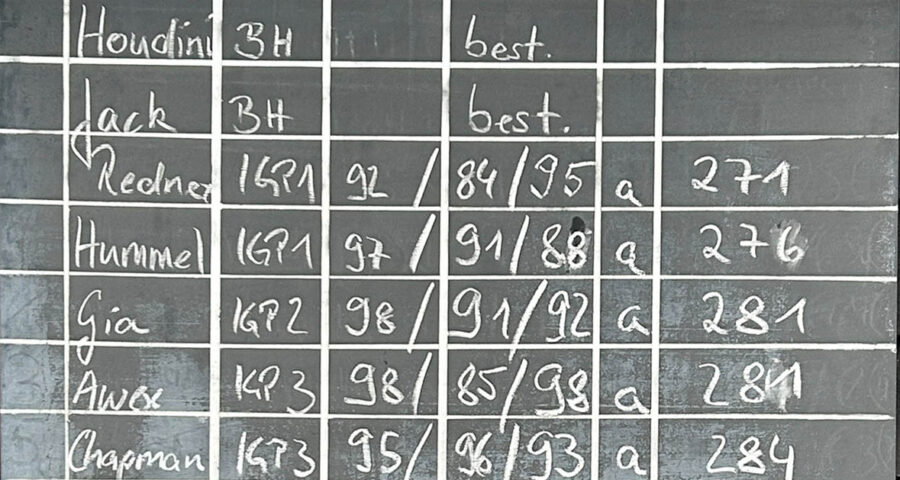 Houdini BH best.
Jack BH best.
Redner IGP1 92 / 84 / 95 a 271
Hummel IGP1 97 / 91 / 88 a 276
Gia IGP2 98 / 91 / 92 a 281
98 / 85 / 98 a 281
Chapman IGP3 95 / 96 / 93 a 284